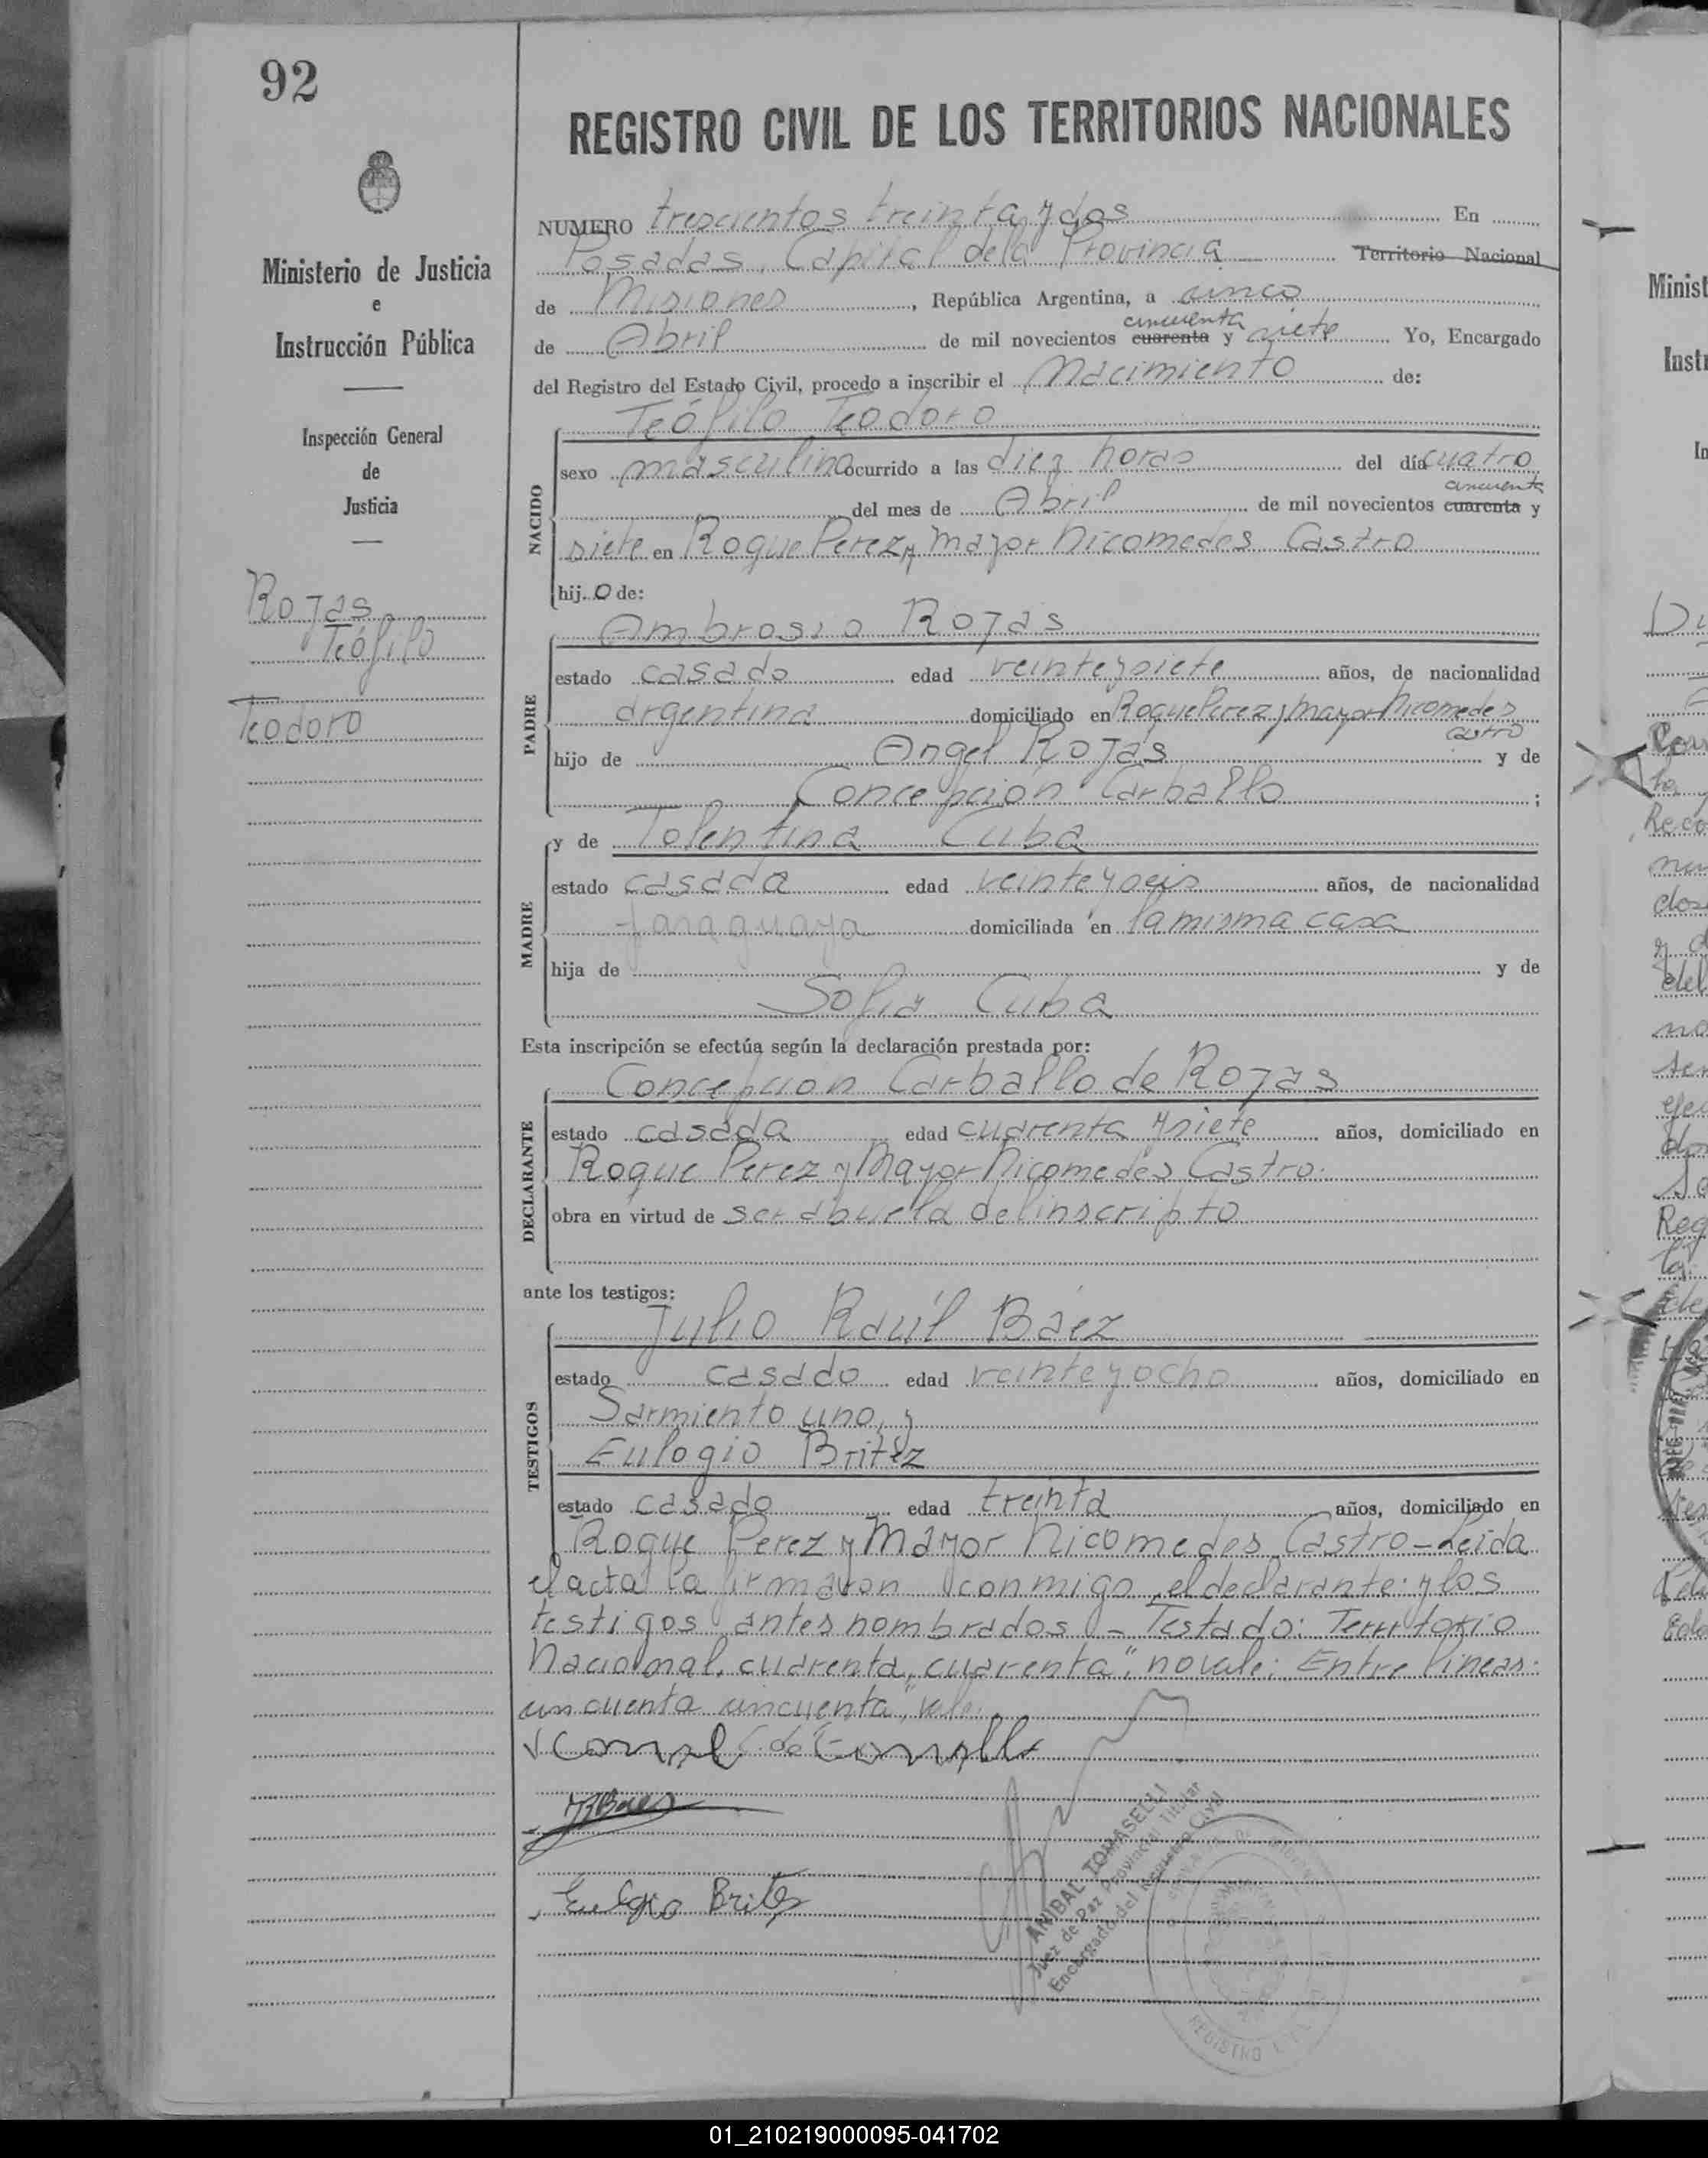 92
REGISTRO CIVIL DE LOS TERRITORIOS NACIONALES
Ministerio de Justicia
e
Instrucción Pública
Inspección General
de
Justicia
Rojas
Teófilo
Teodoro
NUMERO trescientos treinta y dos En
Posadas, Capital de la Provincia Territorio Nacional
de Misiones, República Argentina, a cinco
cincuenta
de Abril de mil novecientos cuarenta y siete Yo, Encargado
del Registro del Estado Civil, procedo a inscribir el Nacimiento de:
NACIDO
Teófilo Teodoro
sexo masculino ocurrido a las diez horas del día cuatro
cincuenta
del mes de Abril de mil novecientos cuarenta y
siete en Roque Perez y Mayor Nicomedes Castro
hij o de:
PADRE
Ambrosio Rojas
estado casado edad veinte y siete años, de nacionalidad
argentina domiciliado en Roque Perez y Mayor Nicomedes
Castro
hijo de Angel Rojas y de
Concepción Carballo ;
MADRE
y de Tolentina Cuba
estado casada edad veinte y seis años, de nacionalidad
paraguaya domiciliada en la misma casa
hija de y de
Sofia Cuba
Esta inscripción se efectúa según la declaración prestada por:
DECLARANTE
Concepcion Carballo de Rojas
estado casada edad cuarenta y siete años, domiciliado en
Roque Perez y Mayor Nicomedes Castro.
obra en virtud de ser abuela del inscripto
ante los testigos:
TESTIGOS
Julio Raúl Báez
estado casado edad veinte y ocho años, domiciliado en
Sarmiento uno, y
Eulogio Britez
estado casado edad treinta años, domiciliado en
Roque Perez y Mayor Nicomedes Castro - Leida
el acta la firmaron conmigo, el declarante y los
testigos antes nombrados - Testado: Territorio
Nacional, cuarenta, cuarenta", no vale: Entre lineas:
cincuenta cincuenta", vale.
JRBaez
Eulogio Britez
ANIBAL TOMASELLI
Juez de Paz Provincial Titular
Encargado del Registro Civil
REGISTRO
01_210219000095-041702